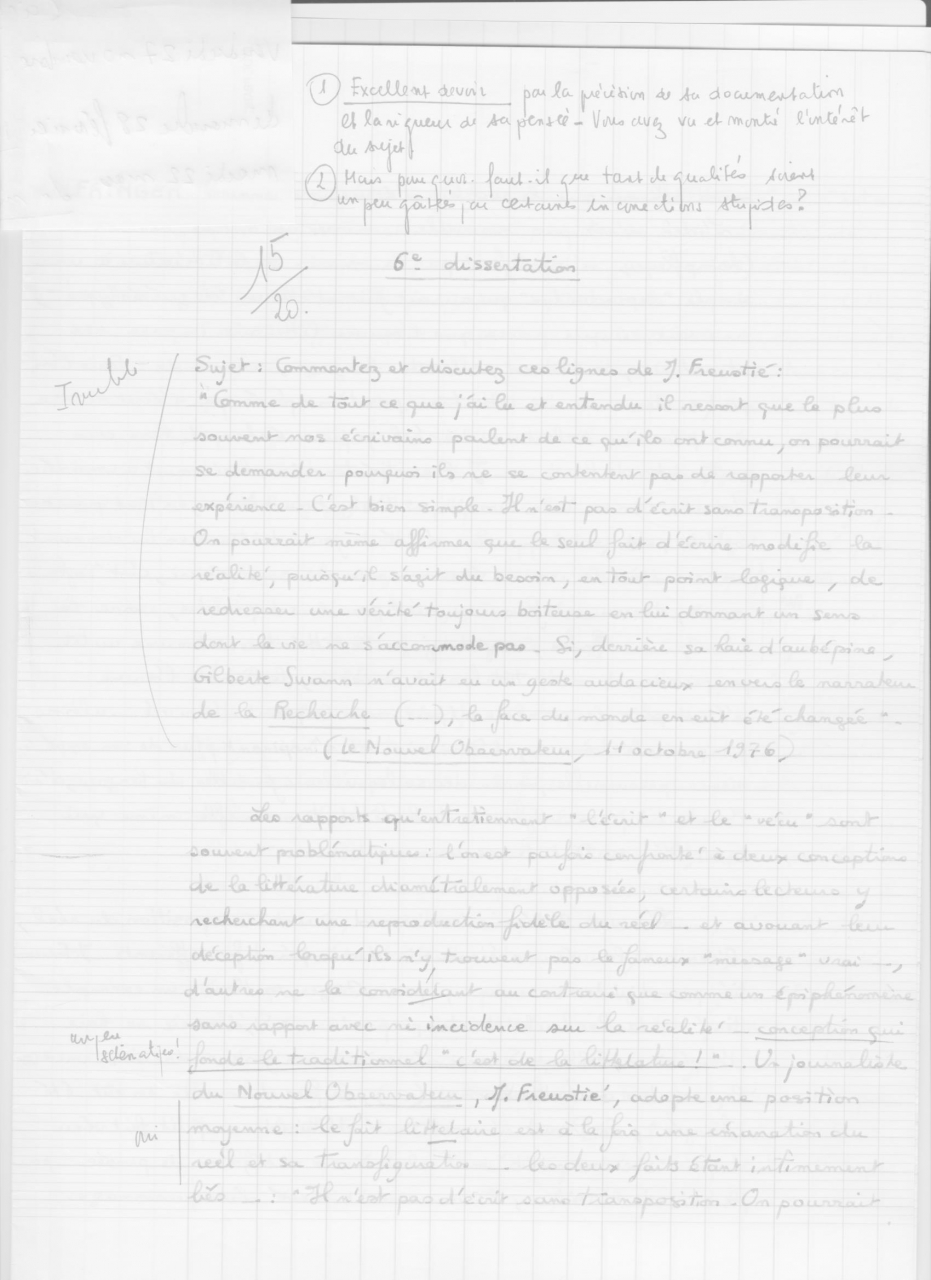 ① Excellent devoir par la précision de sa documentation
et la rigueur de sa pensée - Vous avez vu et montré l'intérêt
du sujet
② Mais pourquoi faut-il que tant de qualités soient
un peu gâtées par certaines incorrections stupides?
15/20.
6e dissertation
Inutile
Sujet : Commentez et discutez ces lignes de J. Freustié :
"Comme de tout ce que j'ai lu et entendu il ressort que le plus
souvent nos écrivains parlent de ce qu'ils ont connu, on pourrait
se demander pourquoi ils ne se contentent pas de rapporter leur
expérience. C'est bien simple. Il n'est pas d'écrit sans transposition.
On pourrait même affirmer que le seul fait d'écrire modifie la
réalité, puisqu'il s'agit du besoin, en tout point logique, de
redresser une vérité toujours boiteuse en lui donnant un sens
dont la vie ne s'accommode pas. Si, derrière sa haie d'aubépine,
Gilberte Swann n'avait eu un geste audacieux envers le narrateur
de la Recherche (...), la face du monde en eût été changée".
(Le Nouvel Observateur, 11 octobre 1976)
Les rapports qu'entretiennent "l'écrit" et le "vécu" sont
souvent problématiques : l'on est parfois confronté à deux conceptions
de la littérature diamétralement opposées, certains lecteurs y
recherchant une reproduction fidèle du réel - et avouant leur
déception lorsqu'ils n'y trouvent pas le fameux "message" vrai -,
d'autres ne la considérant au contraire que comme un épiphénomène
sans rapport avec ni incidence sur la réalité - conception qui
un peu schématique!
fonde le traditionnel "c'est de la littérature!". Un journaliste
du Nouvel Observateur, J. Freustié, adopte une position
moyenne : le fait littéraire est à la fois une émanation du
oui
réel et sa transfiguration - les deux faits étant intimement
liés - : "Il n'est pas d'écrit sans transposition. On pourrait